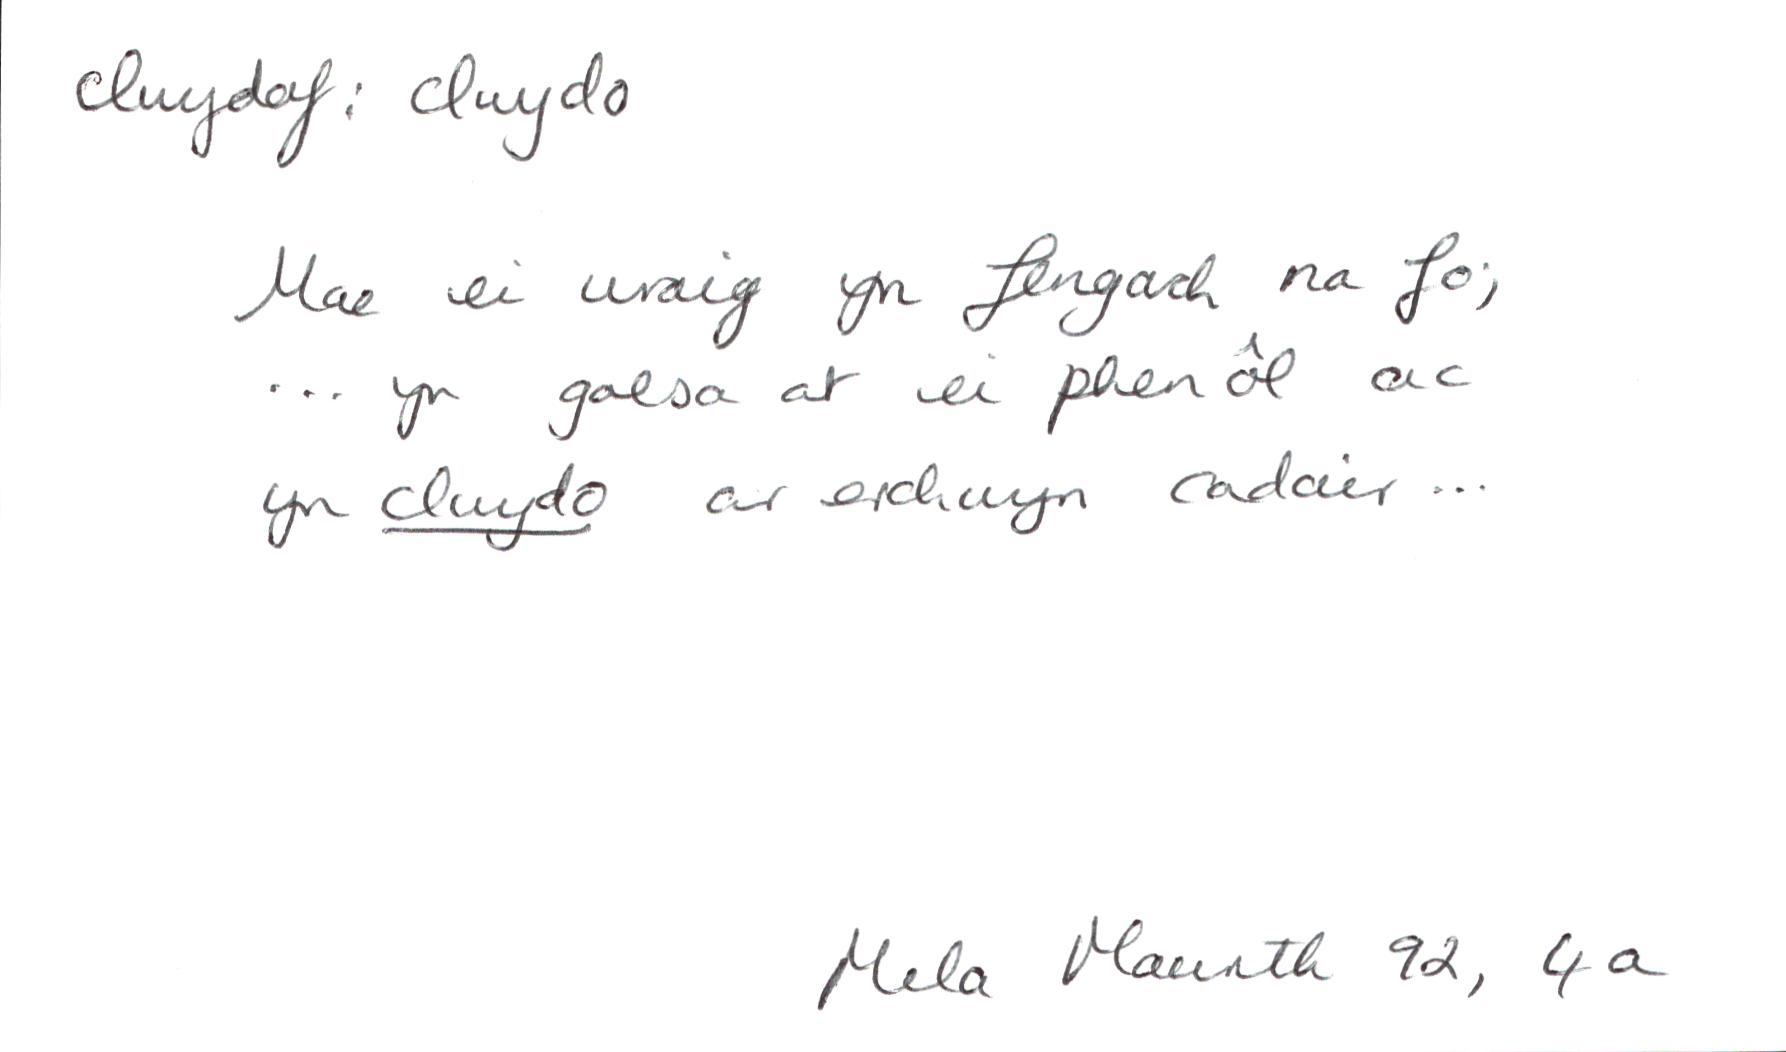 clwydaf: clwydo
Mae ei wraig yn fengach na fo;
... yn galsa at ei phenôl ac
yn clwydo ar erchwyn cadair ...
Mela Mawrth 92, 4a